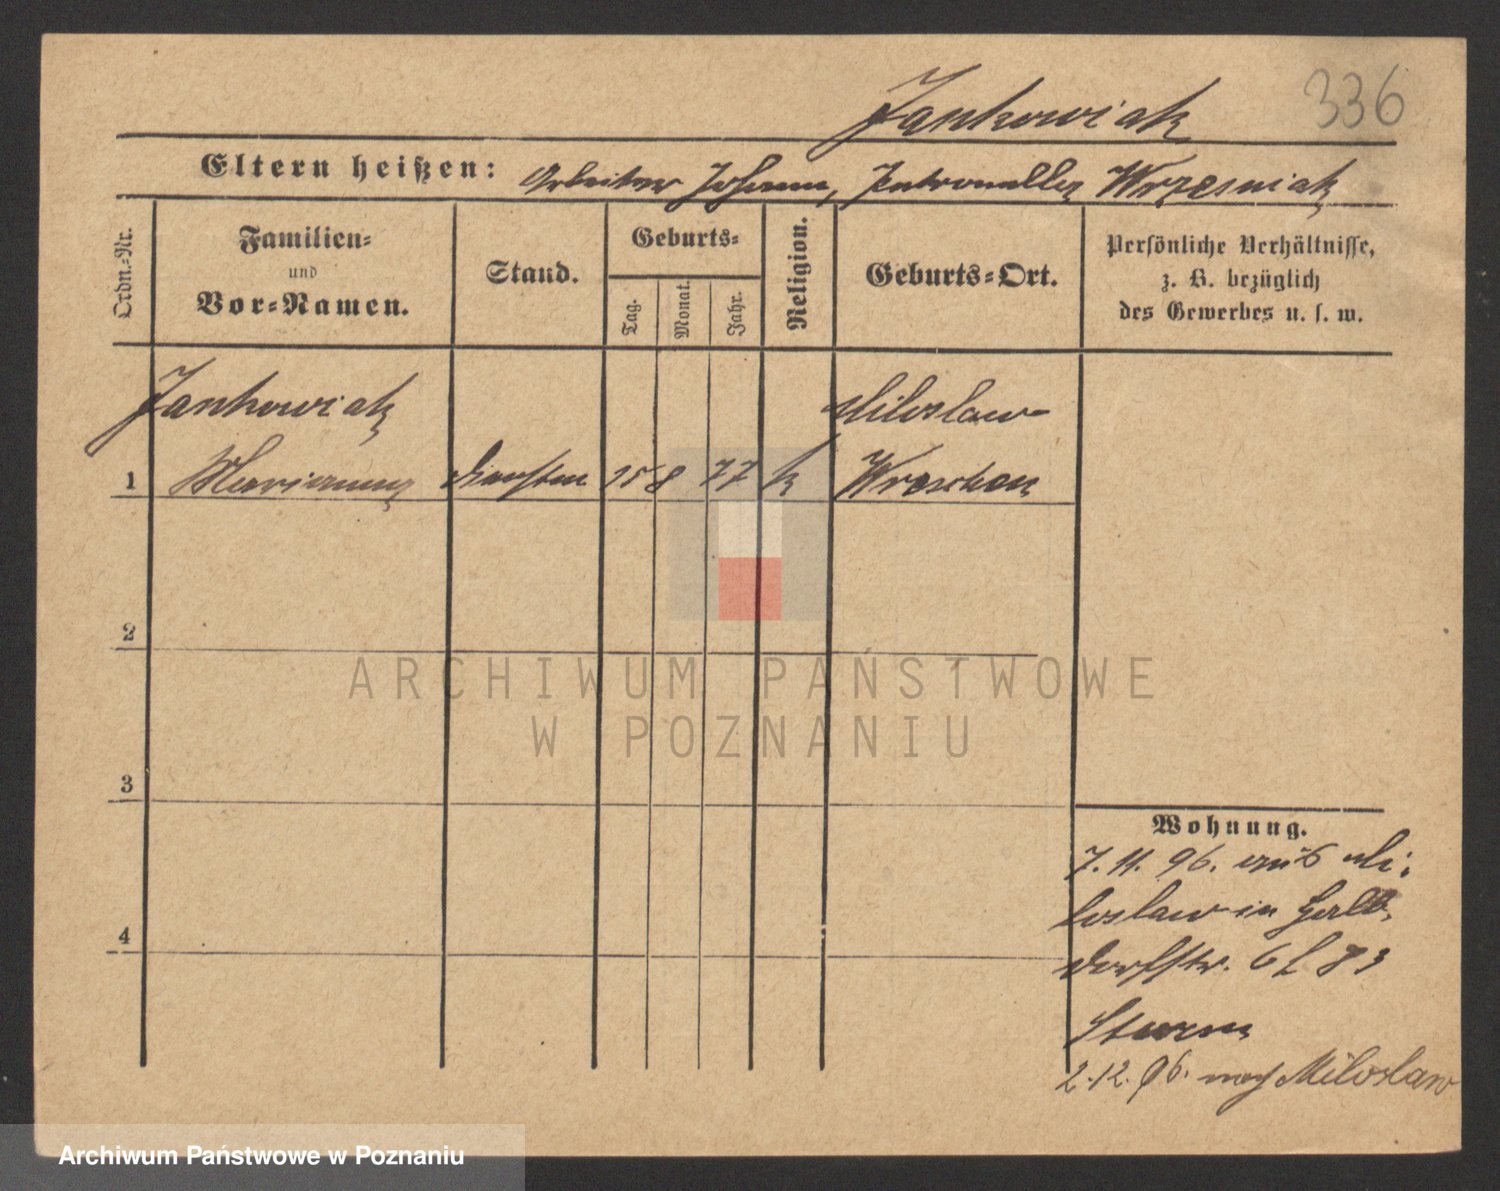 Jankowiak 336
Eltern heißen: Arbeiter Johann, Petronella Wrzesniak
Ordn.-Nr.
Familien-
und
Vor-Namen.
Stand.
Geburts-
Tag.
Monat.
Jahr.
Religion.
Geburts-Ort.
Persönliche Verhältnisse,
z. B. bezüglich
des Gewerbes u. s. w.
Jankowiak Miloslaw
1 Marianna 15 8 77 k Wreschen
2
ARCHIWUM PAŃSTWOWE
W POZNANIU
3
Wohnung.
7. 11. 96. aus Mi-
loslaw in
dorfstr. 6
Sturm
4
2.12.96. nach Miloslaw
Archiwum Państwowe w Poznaniu